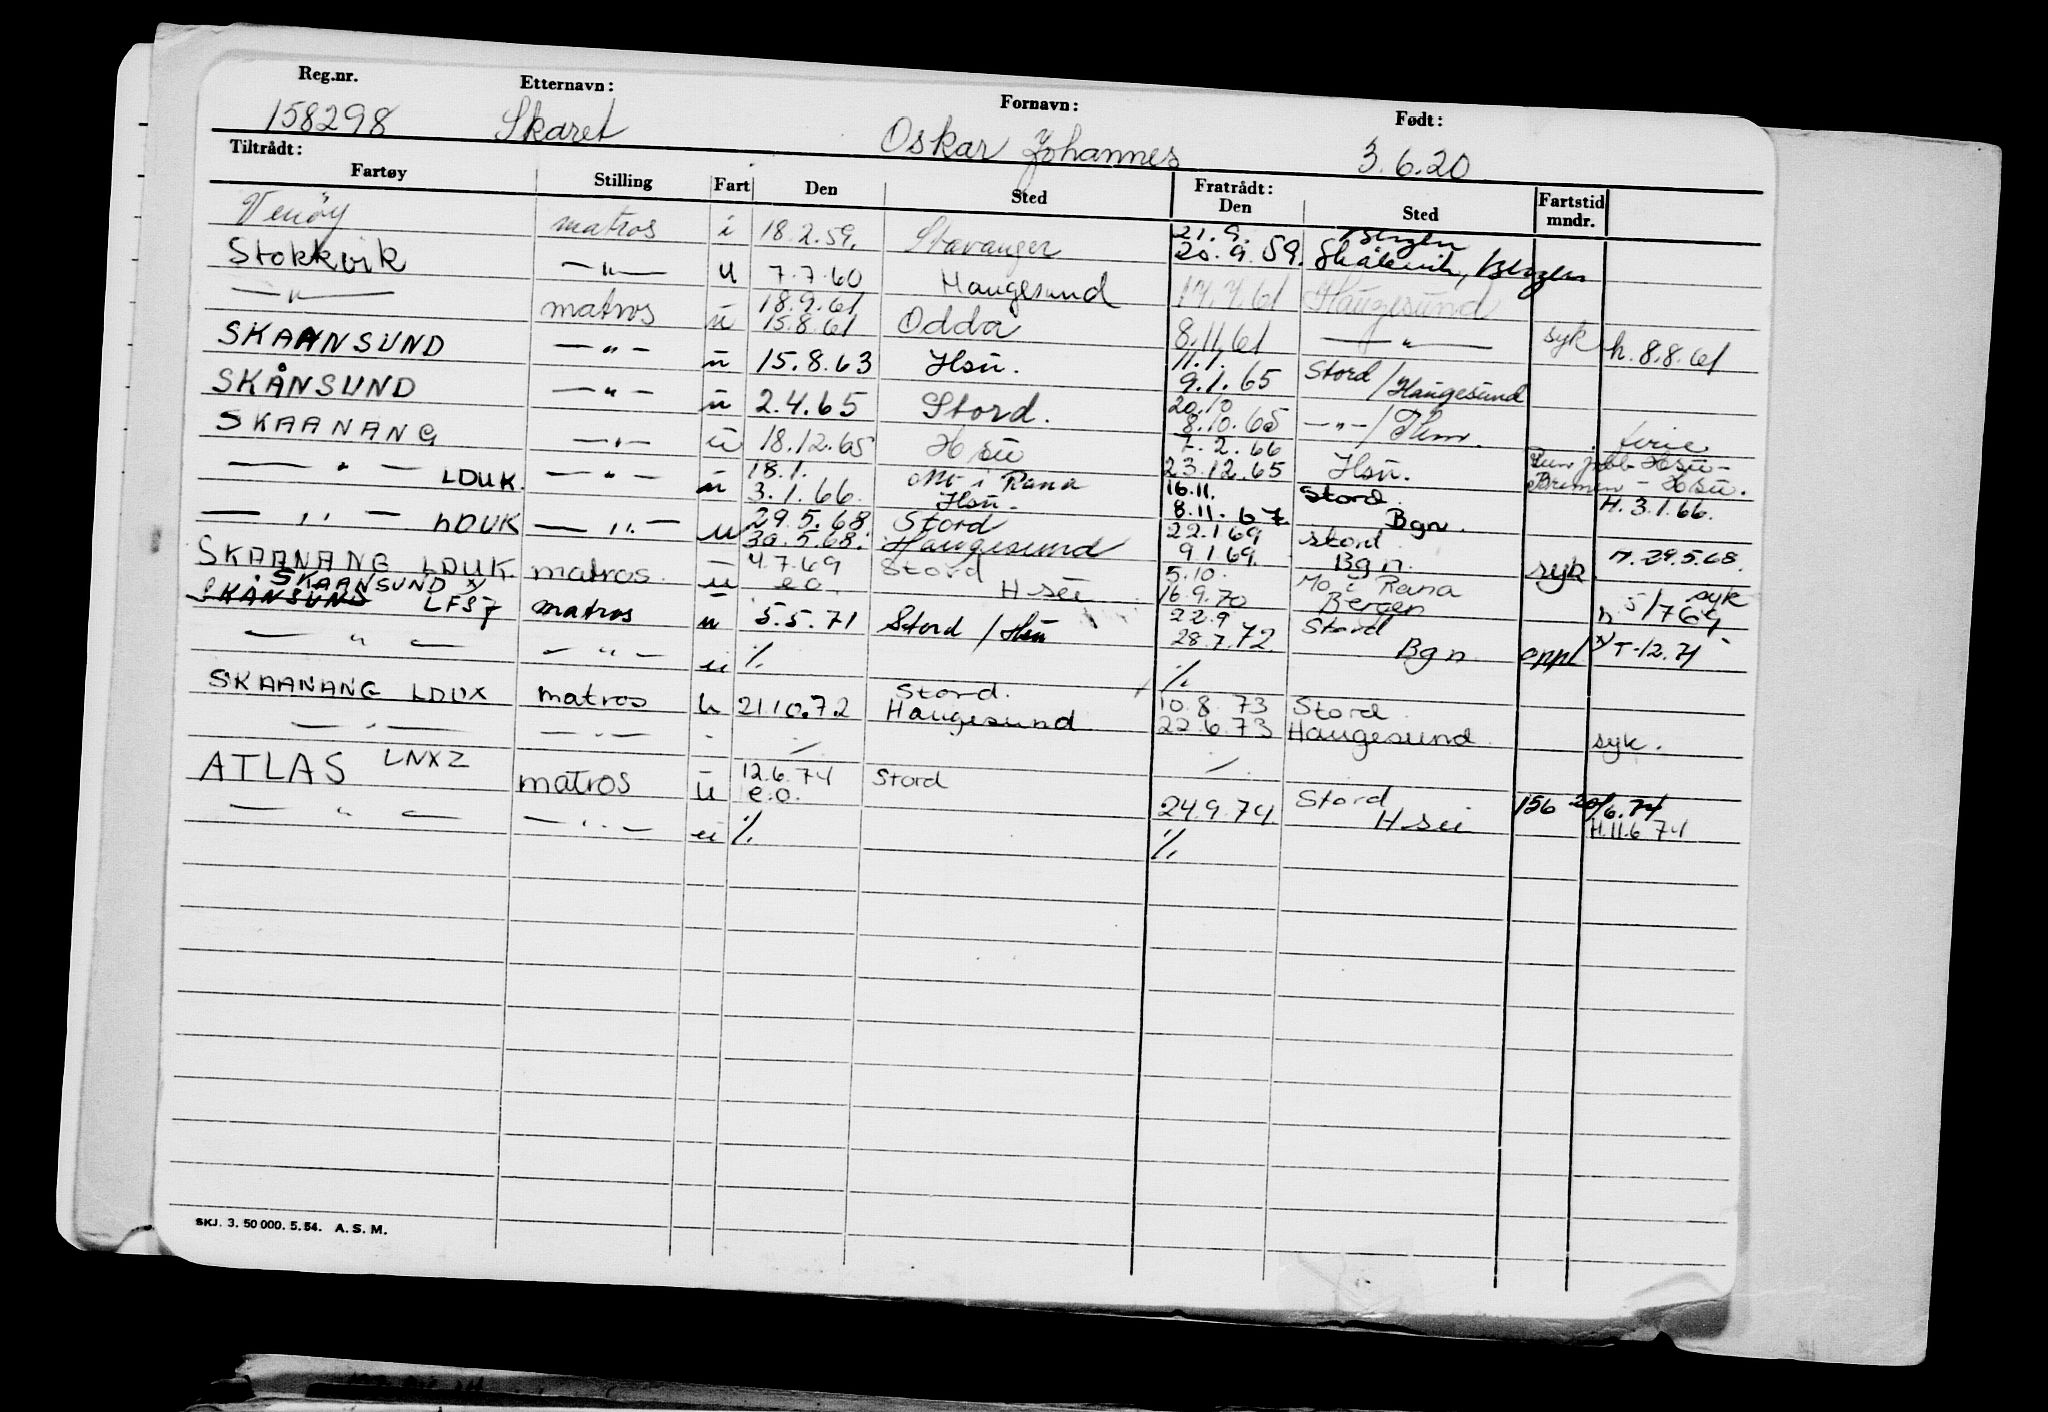 Reg.nr. Etternavn: Fornavn: Født:
158298 Skaret Oskar Johannes 3.6.20
Tiltrådt: Fratrådt:
Fartøy Stilling Fart Den Sted Den Sted Fartstid mndr.
Venöy matros i 18.2.59. Stavanger 21.9. Bergen
20.9.59. Skålevik, Bergen
Stokkvik — " — u 7.7.60 Haugesund 17.7.61 Haugesund
— " — matros u 18.9.61 Odda 8.11.61 — " — syk h. 8.8.61
15.8.61
SKAANSUND — " — u 15.8.63 Hsu. 11.1. Stord / Haugesund
9.1.65
SKÅNSUND — " — u 2.4.65 Stord. 20.10 — " — /
8.10.65
SKAANANG — " — u 18.12.65 Hsu 7.2.66 ferie
23.12.65 Hsu. Hsu -
Bremen - Hsu.
— " — LDUK. — " — u 18.1. Mo i Rana 16.11. Stord.
3.1.66. Hsu. 8.11.67 Bgn. H. 3.1.66.
— " — LDUK — " — u 29.5.68 Stord 22.1.69 Stord
30.5.68. Haugesund 9.1.69. Bgn. syk. h. 29.5.68.
SKAANANG LDUK matros. u 4.7.69 Stord 5.10. Mo i Rana syk
e.o. H seu 16.9.70 Bergen h 5/7 69
SKAANSUND x)
SKÅNSUND LFSF matros u 5.5.71 Stord / Hsu 22.9 Stord
28.7.72 Bgn. oppl x) T-12.71
— " — — " — u ·/. ·/.
SKAANANG LDUX matros u 21.10.72 Stord. 10.8.73 Stord.
Haugesund 22.6.73 Haugesund
— " — — " — - ·/. ·/. syk.
ATLAS LNXZ matros u 12.6.74 Stord Stord 156 20/6.74
e.o. 24.9.74. H seu H.11.6 74
— " — — " — u ·/. ·/.
SKJ. 3. 50 000. 5. 54. A. S. M.